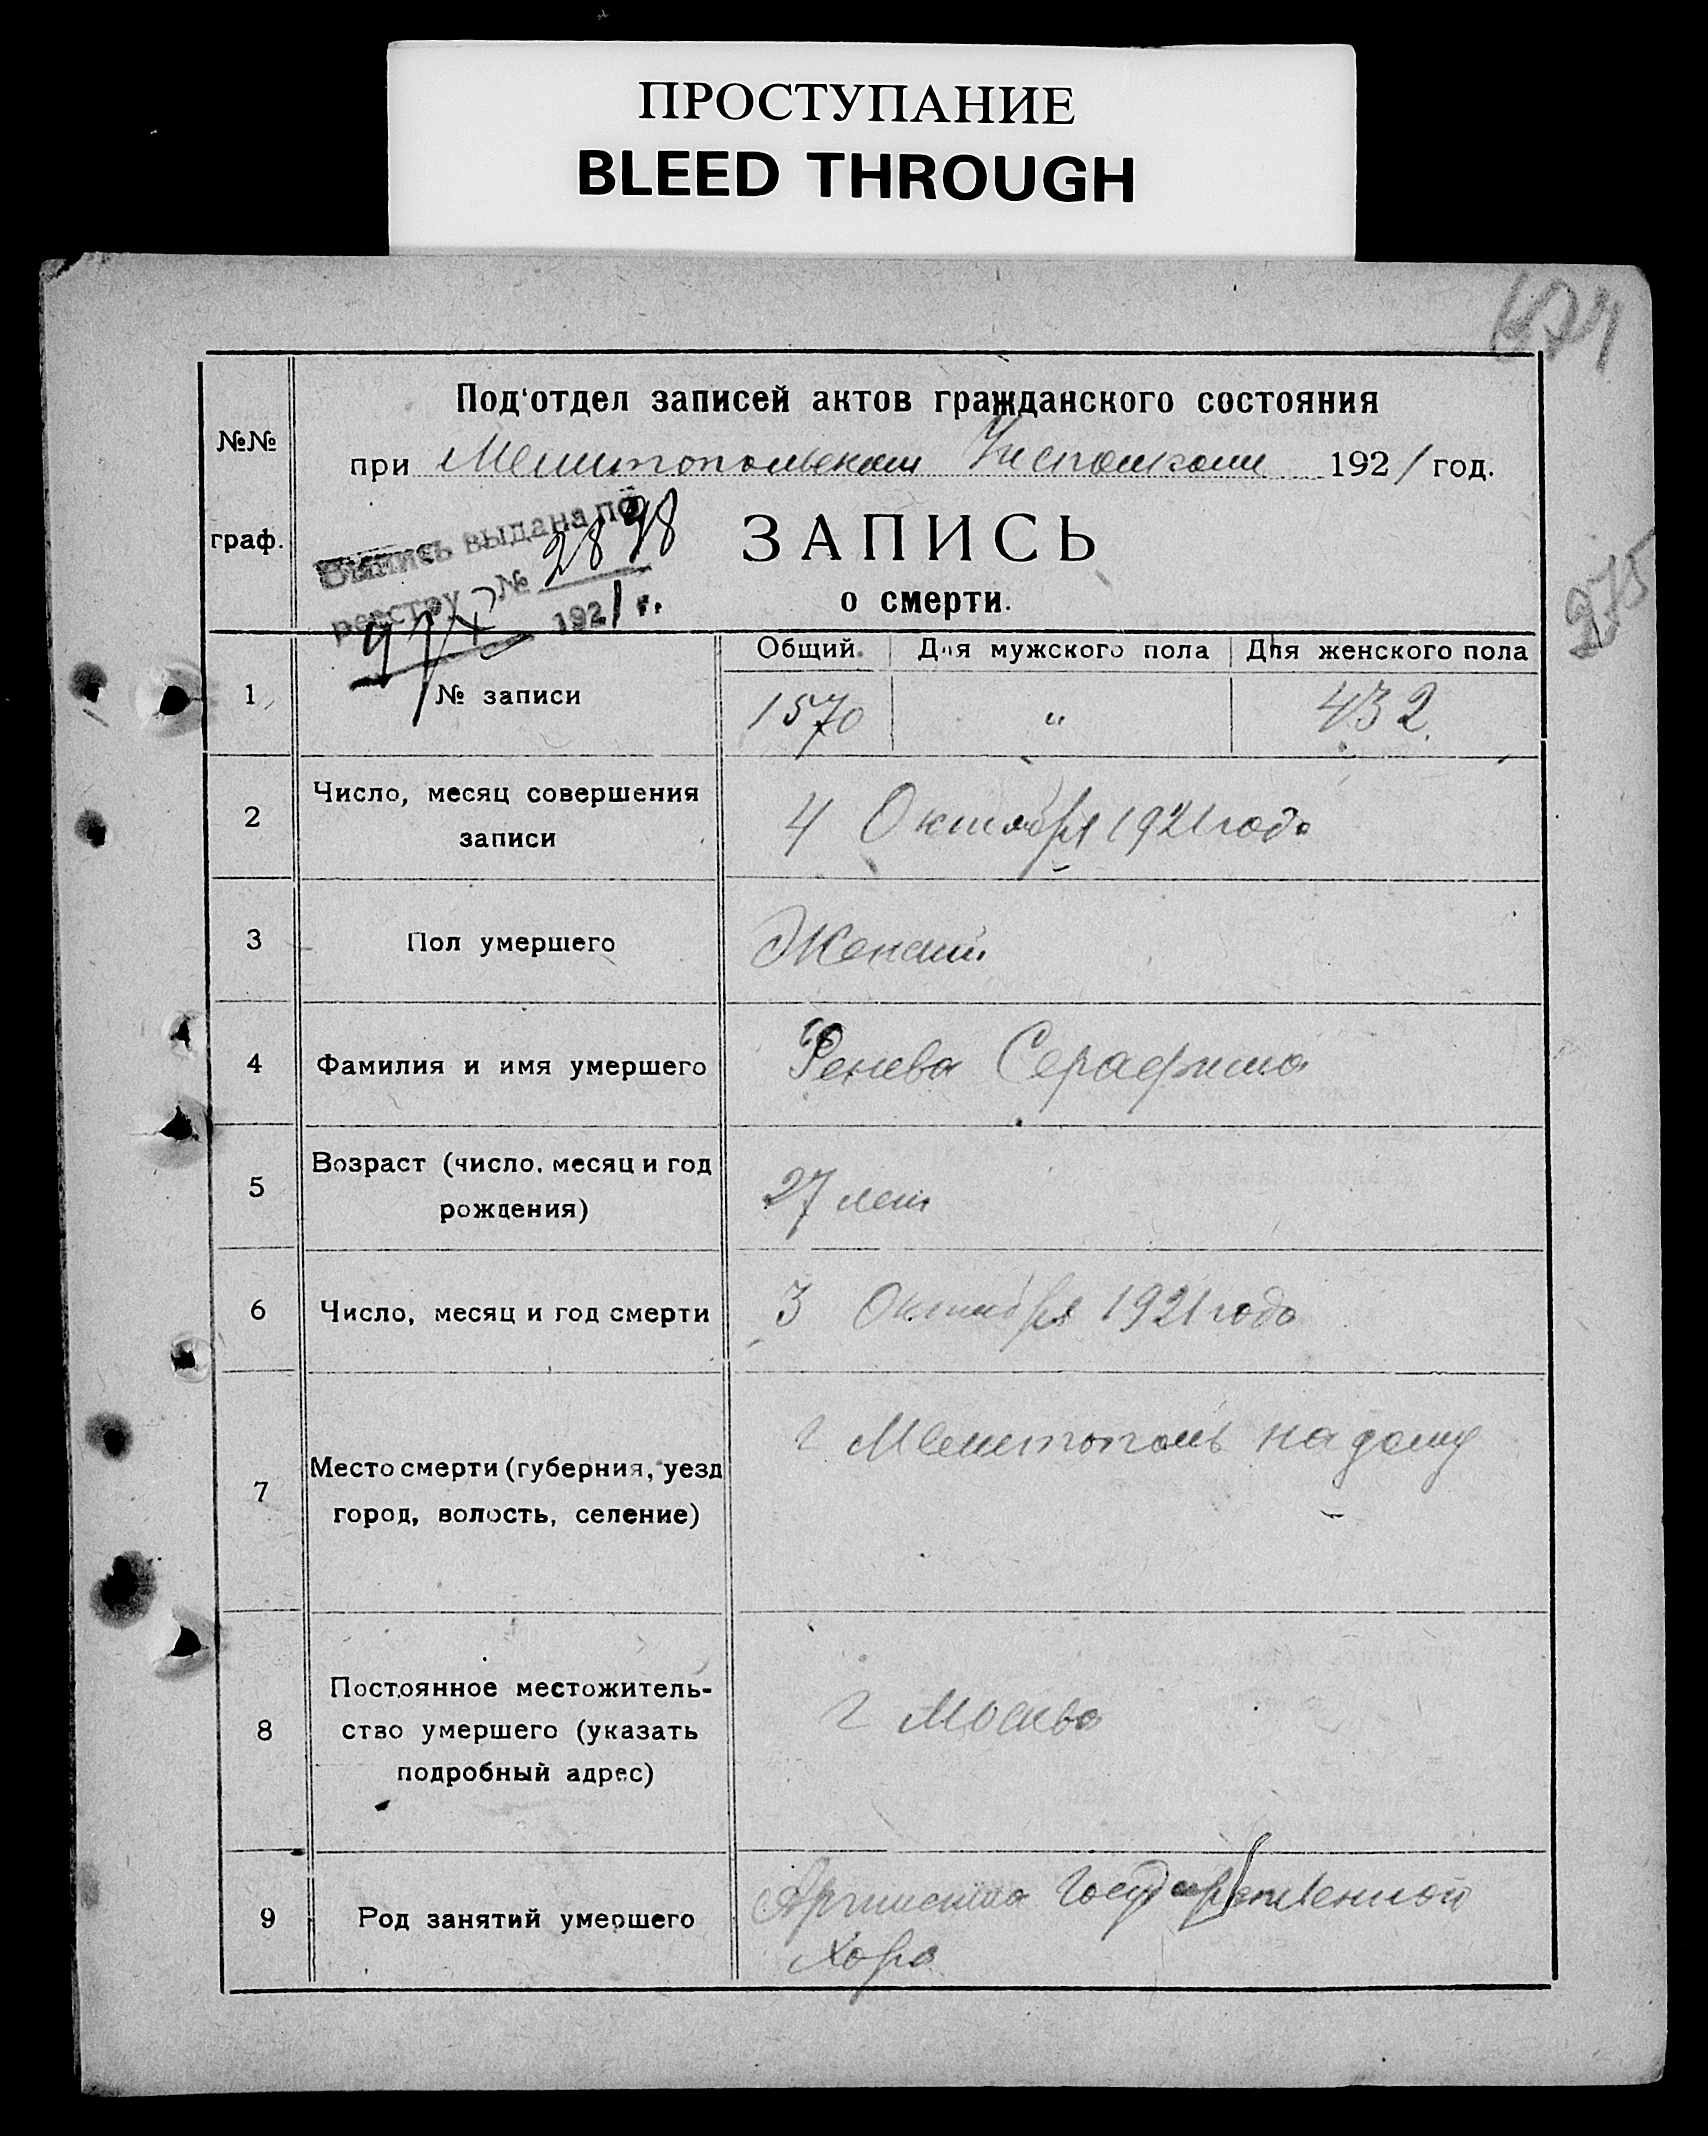 ПРОСТУПАНИЕ
BLEED THROUGH
Под'отдел записей актов гражданского состояния
№№
при Мелитопольском Исполкоме 1921 год.
граф.
Выпись выдана по
реестру № 2898
1921 г.
ЗАПИСЬ
о смерти.
275
Общий. Для мужского пола Для женского пола
1 № записи 1570 " 432
2 Число, месяц совершения
записи
4 Октября 1921 года
3 Пол умершего Женский
4 Фамилия и имя умершего Ренева Серафима
5 Возраст (число, месяц и год
рождения)
27 лет
6 Число, месяц и год смерти 3 Октября 1921 года
7 Место смерти (губерния, уезд
город, волость, селение)
г Мелитополь на дому
8 Постоянное местожитель-
ство умершего (указать
подробный адрес)
г Москва
9 Род занятий умершего Артистка Государственной
Хора